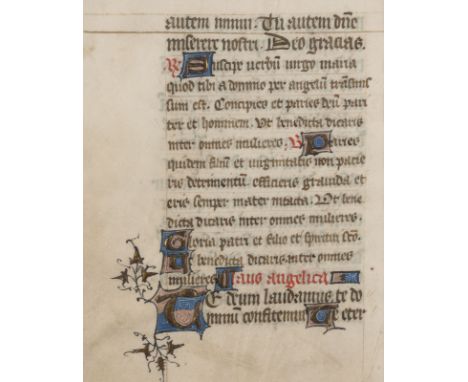 autem innui. Tu autem dne
miserere nostri. Deo gracias.
R Suscipe verbu virgo maria
quod tibi a domino per angelu trasmi
sum est. Concipies et paries deu pari
ter et hominem. Ut benedicta dicaris
inter omnes mulieres. V Paries
quidem filiu et virginitatis non pacie
ris detrimentu efficieris gravida et
eris semper mater intacta. Ut bene
dicta dicaris inter omnes mulieres.
Gloria patri et filio et spiritui sco.
Ut benedicta dicaris inter omnes
mulieres Laus angelica
Te deum laudamus te do
minum confitemur Te eter